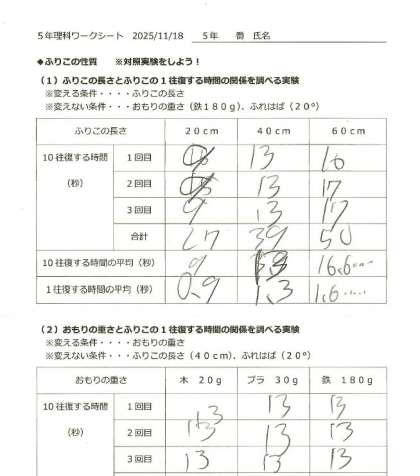 5年理科ワークシート 2025/11/18 5年 番 氏名
◆ふりこの性質 ※対照実験をしよう!
(1)ふりこの長さとふりこの1往復する時間の関係を調べる実験
※変える条件・・・・ふりこの長さ
※変えない条件・・・おもりの重さ(鉄180g)、ふれはば(20°)
ふりこの長さ 20cm 40cm 60cm
10往復する時間 1回目 13 16
(秒) 2回目 13 17
3回目 9 13 17
合計 27 39 50
10往復する時間の平均(秒) 9 13 16.6……
1往復する時間の平均(秒) 0.9 1.3 1.6……
(2)おもりの重さとふりこの1往復する時間の関係を調べる実験
※変える条件・・・・おもりの重さ
※変えない条件・・・ふりこの長さ(40cm)、ふれはば(20°)
おもりの重さ 木 20g プラ 30g 鉄 180g
10往復する時間 1回目 13 13 13
(秒) 2回目 13 13 13
3回目 13 13 13